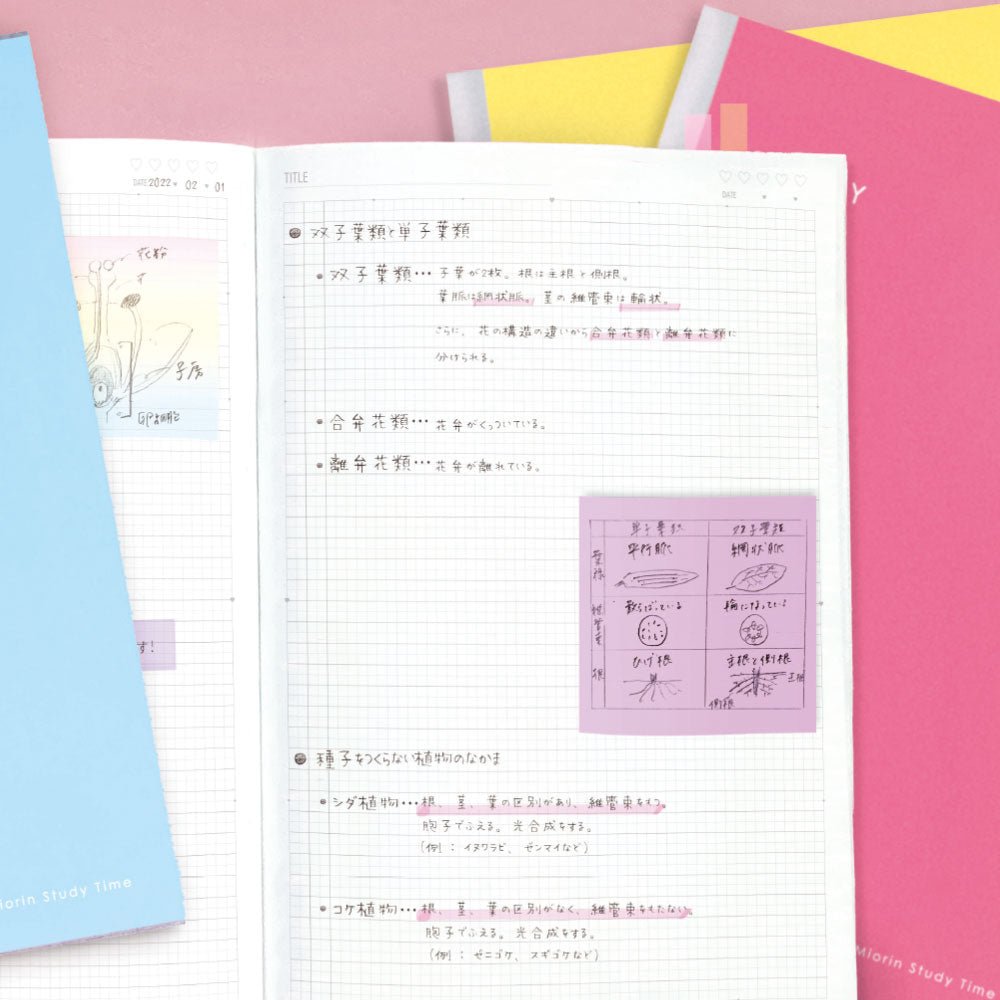 DATE 2022 02 01
花粉
子房
卵細胞
す!
Miorin Study Time
TITLE
DATE
双子葉類と単子葉類
双子葉類… 子葉が2枚。根は主根と側根。
葉脈は網状脈。茎の維管束は輪状。
さらに、花の構造の違いから合弁花類と離弁花類に
分けられる。
合弁花類… 花弁がくっついている。
離弁花類… 花弁が離れている。
単子葉類 双子葉類
葉脈 平行脈 網状脈
維管束 散らばっている 輪になっている
根 ひげ根 主根と側根
主根
側根
種子をつくらない植物のなかま
シダ植物… 根、茎、葉の区別があり、維管束をもつ。
胞子でふえる。光合成をする。
(例:イヌワラビ、ゼンマイなど)
コケ植物… 根、茎、葉の区別がなく、維管束をもたない。
胞子でふえる。光合成をする。
(例:ゼニゴケ、スギゴケなど)
Y
Miorin Study Time